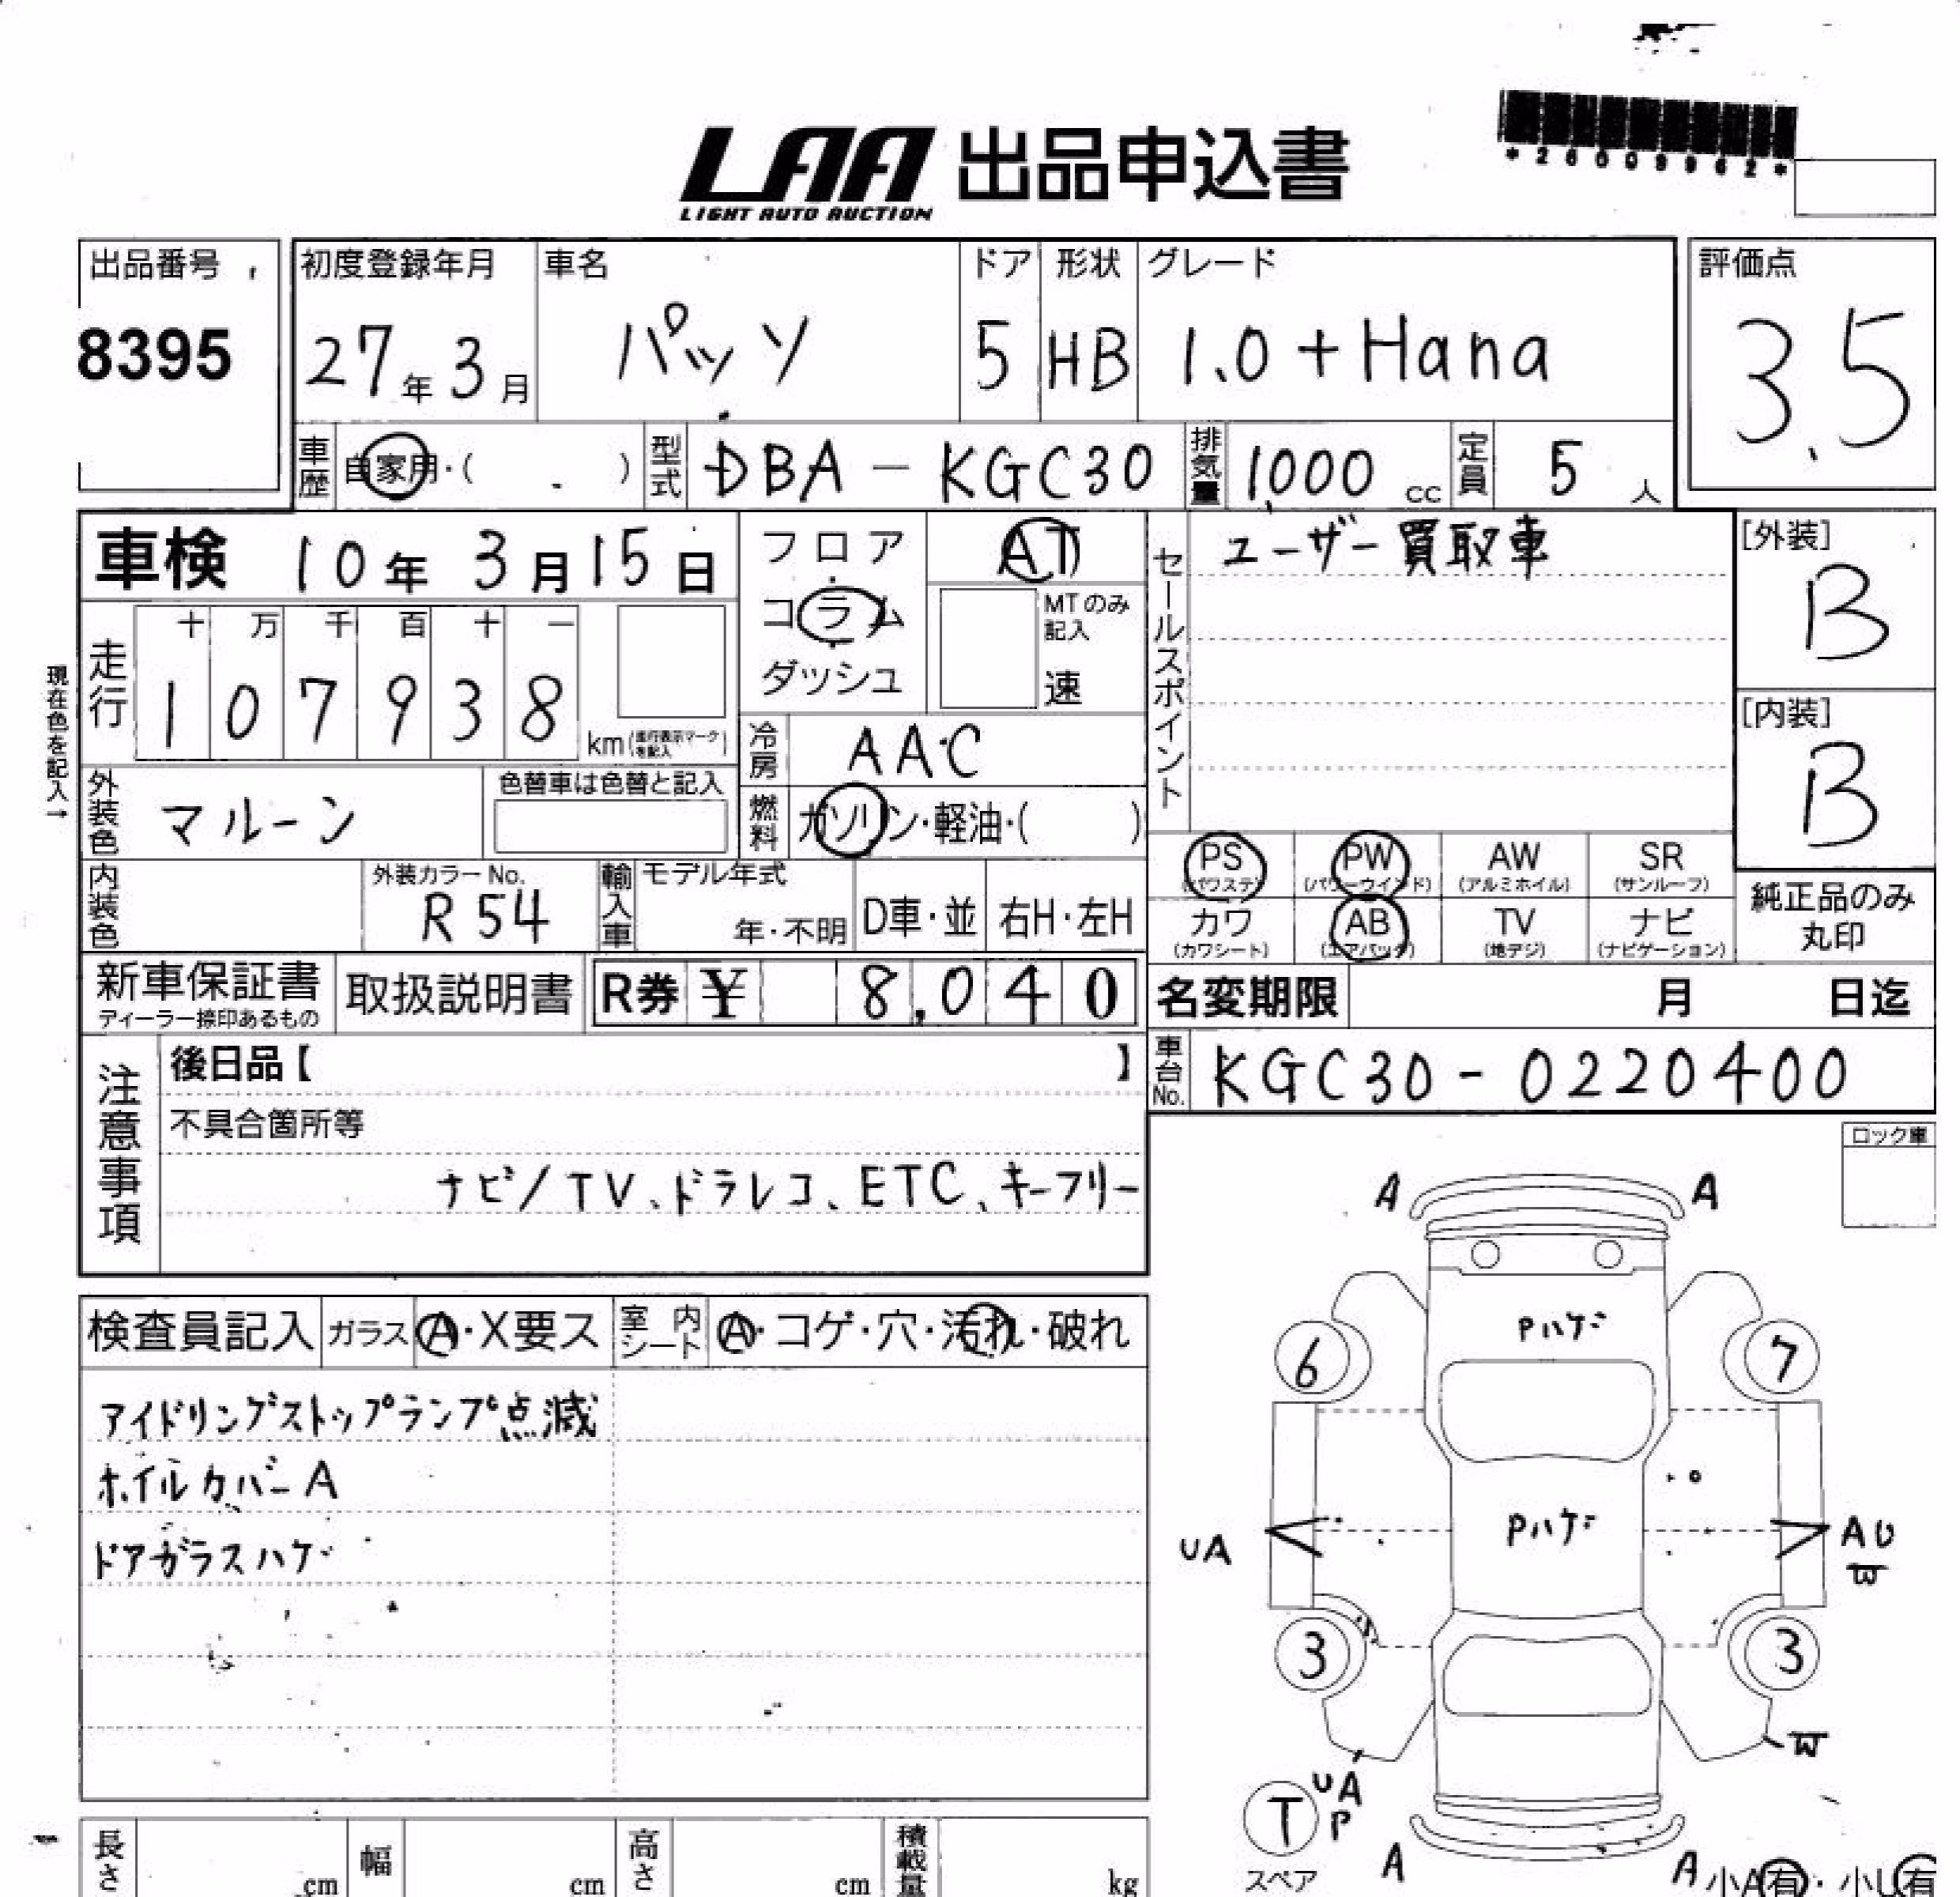 *26009962*
LAA 出品申込書
LIGHT AUTO AUCTION
出品番号
8395
初度登録年月
27年3月
車名
パッソ
ドア
5
形状
HB
グレード
1.0 +Hana
評価点
3.5
車歴
自家用・( )
型式
DBA-KGC30
排気量
1,000 cc
定員
5 人
車検 10年 3月 15日
フロア
コラム
ダッシュ
AT
MTのみ
記入
速
セールスポイント
ユーザー買取車
[外装]
B
[内装]
B
現在色を記入→
走行
十 万 千 百 十 一
1 0 7 9 3 8
km(走行表示マークを記入)
冷房
AAC
外装色
マルーン
色替車は色替と記入
燃料
ガソリン・軽油・( )
PS
(パワステ)
PW
(パワーウインド)
AW
(アルミホイル)
SR
(サンルーフ)
カワ
(カワシート)
AB
(エアバッグ)
TV
(地デジ)
ナビ
(ナビゲーション)
純正品のみ
丸印
内装色
外装カラーNo.
R54
輸入車
モデル年式
年・不明
D車・並
右H・左H
新車保証書
ディーラー捺印あるもの
取扱説明書
R券 ¥ 8,040
名変期限 月 日迄
注意事項
後日品【 】
不具合箇所等
ナビ/TV、ドラレコ、ETC、キーフリー
車台No.
KGC30-0220400
ロック車
検査員記入
ガラス
A・X要ス
室内シート
A・コゲ・穴・汚れ・破れ
アイドリングストップランプ点滅
ホイルカバーA
ドアガラスハゲ
A
A
Pハゲ
6
7
Pハゲ
UA
AU
W
3
3
W
UA
P
T
スペア
A
A
小A有・小U有
長さ
cm
幅
cm
高さ
cm
積載量
kg